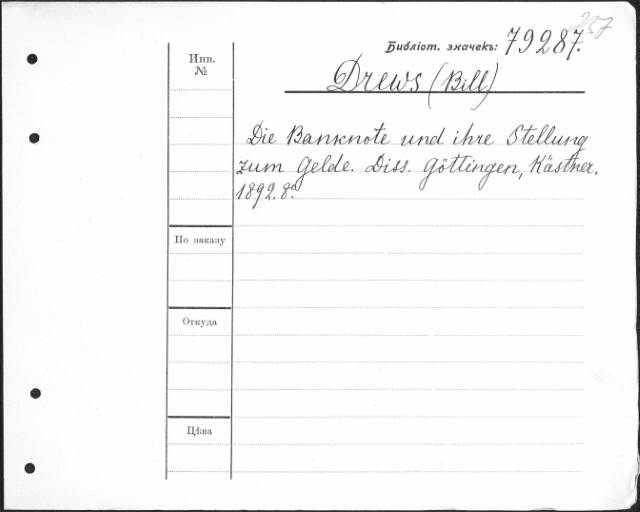 257
Библіот. значекъ: 79287.
Инв.
№
Drews (Bill)
Die Banknote und ihre Stellung
zum Gelde. Diss. Göttingen, Kästner.
1892. 8º
По заказу
Откуда
Цѣна